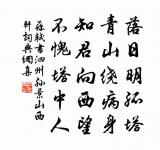 落日明孤塔
青山繞病身
知君向西望
不愧塔中人
蘇軾書泗州孫景山西
軒詞典網集